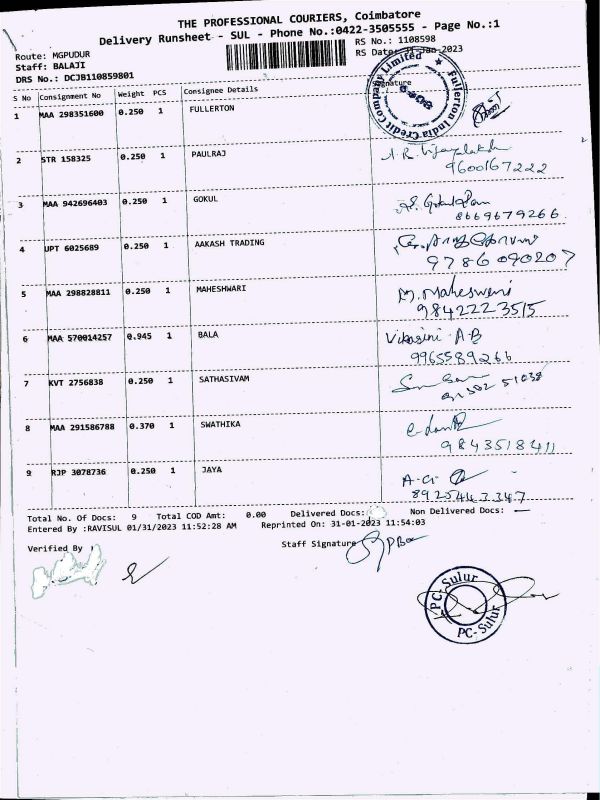 THE PROFESSIONAL COURIERS, Coimbatore
Delivery Runsheet - SUL - Phone No.:0422-3505555 - Page No.:1
Route: MGPUDUR
RS No.: 1108598
Staff: BALAJI
RS Date: Jan 2023
DRS No.: DCJB110859801
S No Consignment No Weight PCS Consignee Details Signature
Fullerton India Credit Company Limited
1 MAA 298351600 0.250 1 FULLERTON
2 STR 158325 0.250 1 PAULRAJ
9600167222
3 MAA 942696403 0.250 1 GOKUL
8669679266.
4 UPT 6025689 0.250 1 AAKASH TRADING
9786090207
5 MAA 298828811 0.250 1 MAHESHWARI M. Maheswari
9842223515
6 MAA 570014257 0.945 1 BALA Vikasini A B
9965589266
7 KVT 2756838 0.250 1 SATHASIVAM
8 MAA 291586788 0.370 1 SWATHIKA
9843518411
9 RJP 3078736 0.250 1 JAYA
8925443347
Total No. Of Docs: 9 Total COD Amt: 0.00 Delivered Docs: Non Delivered Docs: —
Entered By :RAVISUL 01/31/2023 11:52:28 AM Reprinted On: 31-01-2023 11:54:03
Verified By Staff Signature
PC-Sulur
PC-Sulur